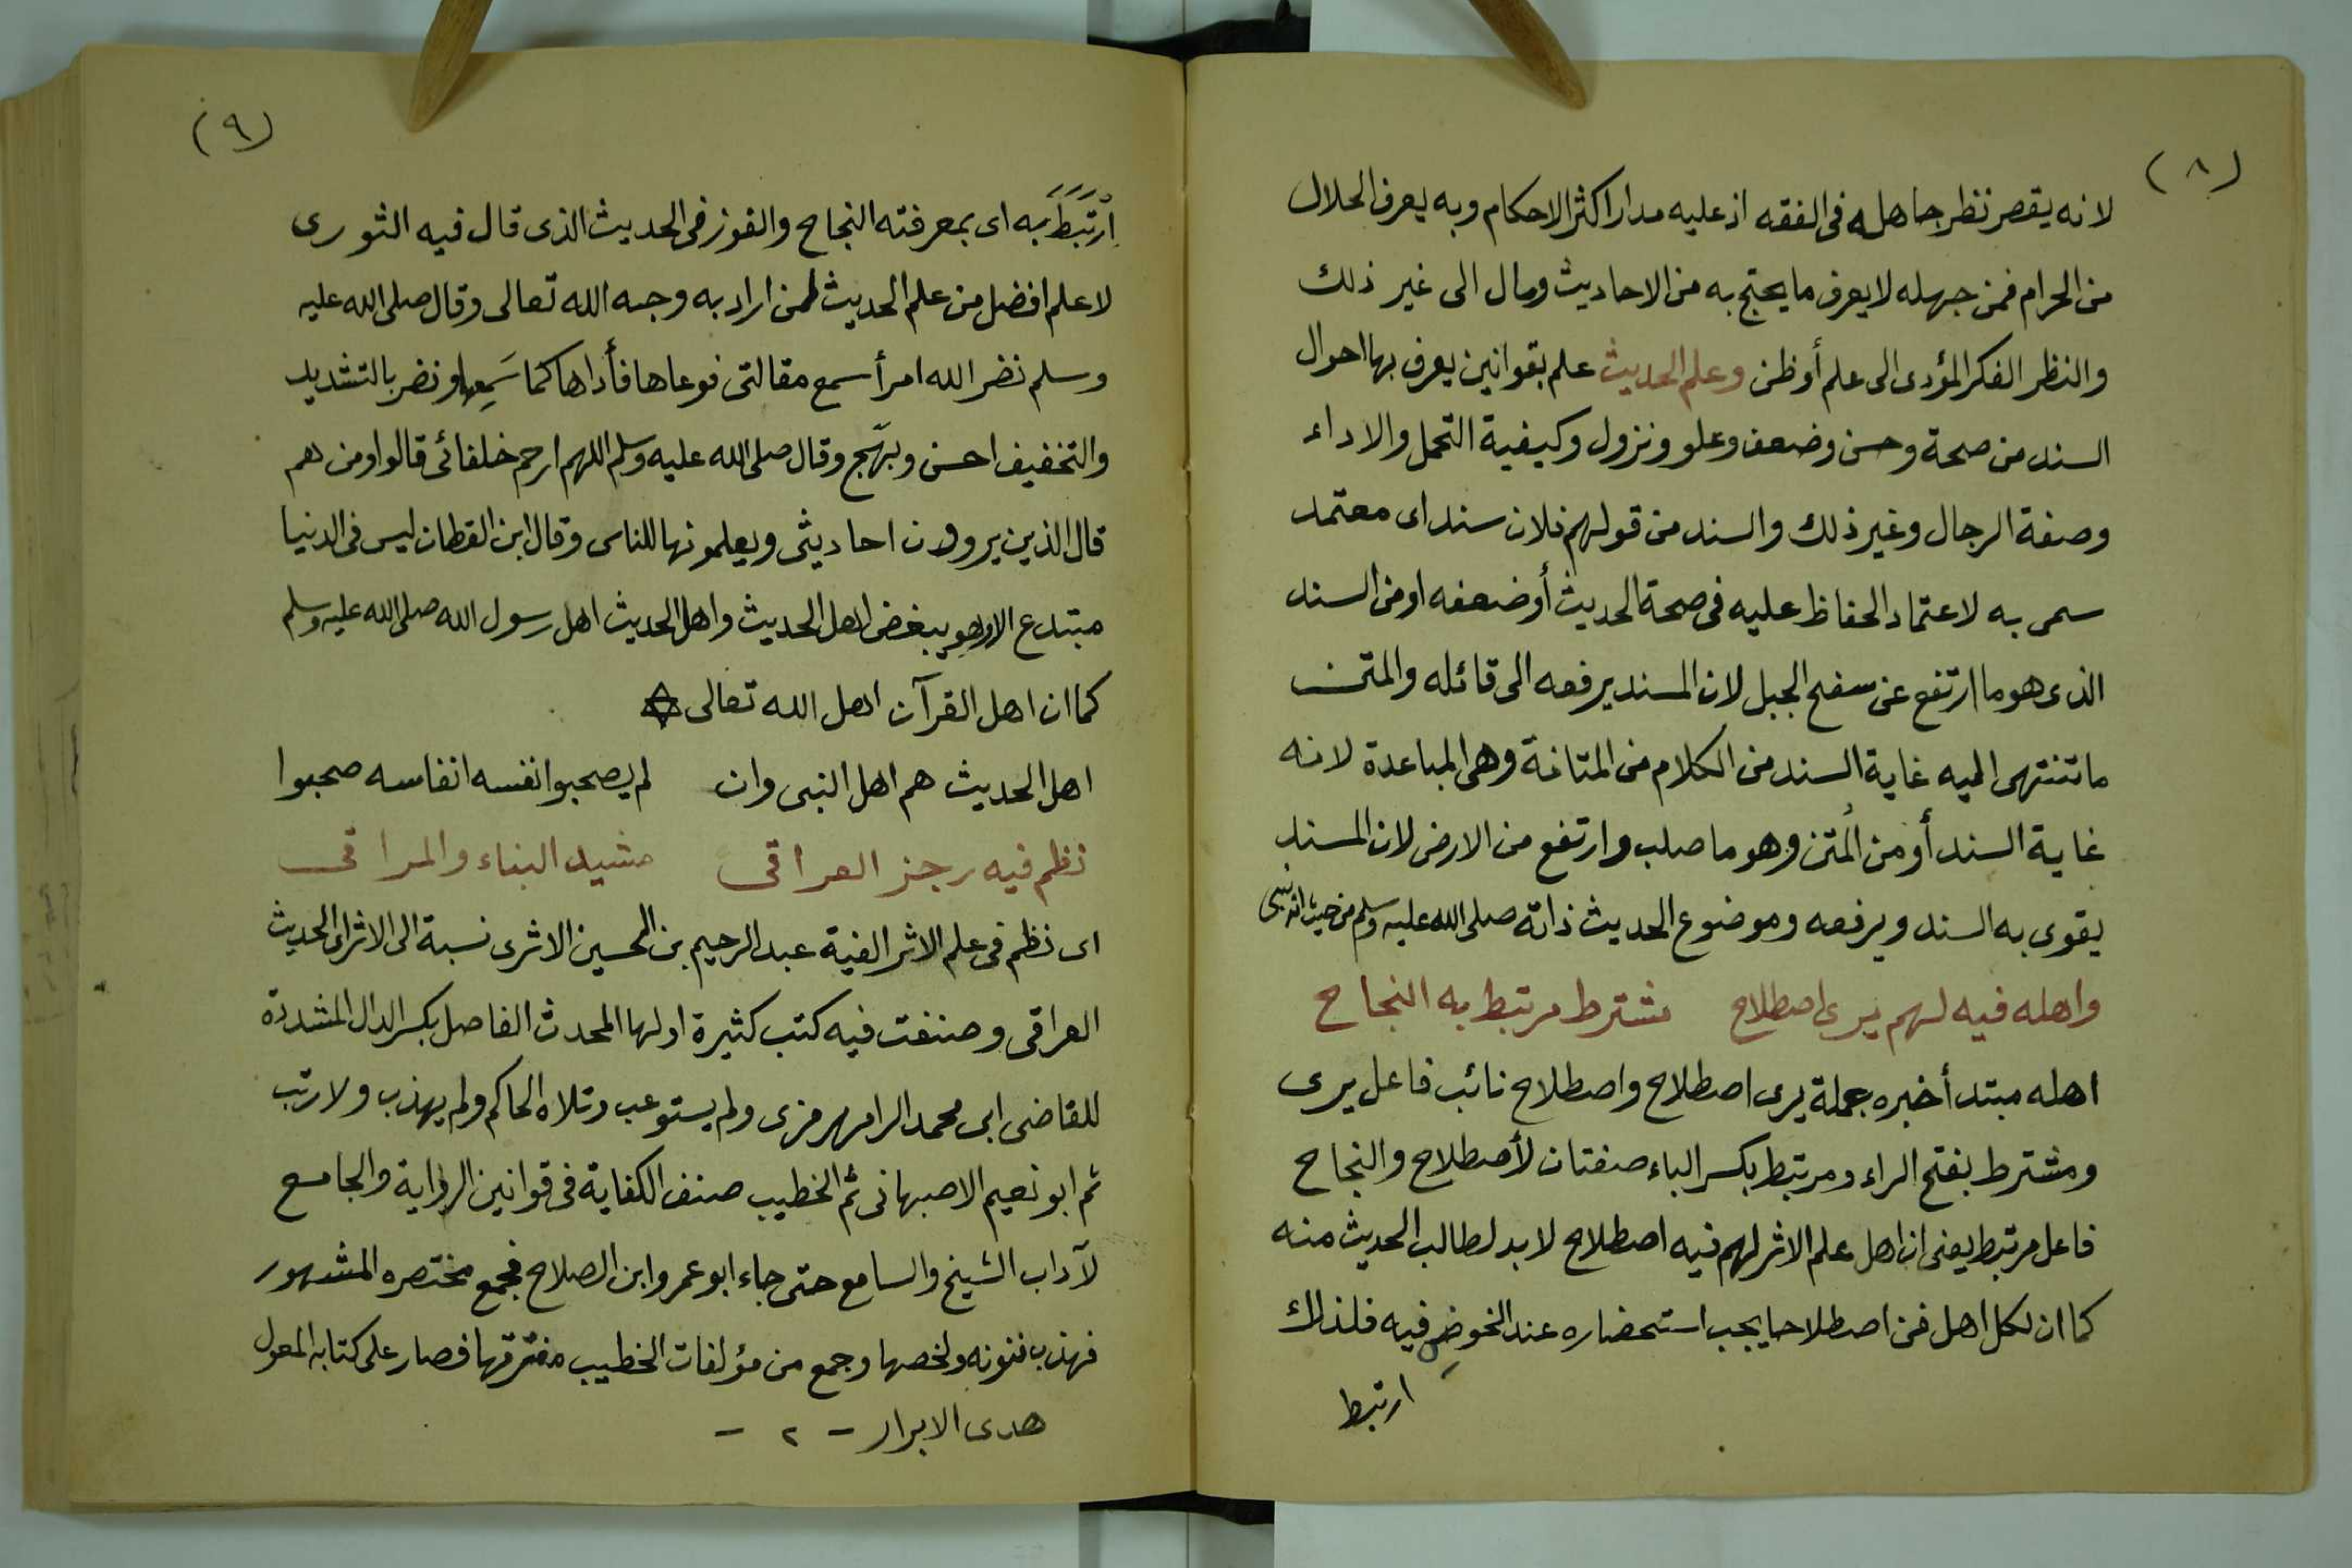 (٨)
لانه يقصر نظر جاهله فى الفقه اذ عليه مدار اكثر الاحكام وبه يعرف الحلال
من الحرام فمن جهله لا يعرف ما يحتج به من الاحاديث ومال الى غير ذلك
والنظر الفكر المؤدى الى علم أوظن وعلم الحديث علم بقوانين يعرف بها احوال
السند من صحة وحسن وضعف وعلو ونزول وكيفية التحمل والاداء
وصفة الرجال وغير ذلك والسند من قولهم فلان سند اى معتمد
سمى به لاعتماد الحفاظ عليه فى صحة الحديث أوضعفه اومن السند
الذى هو ما ارتفع عن سفح الجبل لان المسند يرفعه الى قائله والمتن
ما تنتهى اليه غاية السند من الكلام من المتانة وهى المباعدة لانه
غاية السند أو من المتن وهو ما صلب وارتفع من الارض لان المسند
يقوى به السند ويرفعه وموضوع الحديث ذاته صلى الله عليه وسلم من حيث انه نبى
واهله فيه لهم يرى اصطلاح مشترط مرتبط به النجاح
اهله مبتدأ خبره جملة يرى اصطلاح واصطلاح نائب فاعل يرى
ومشترط بفتح الراء ومرتبط بكسر الباء صفتان لأصطلاح والنجاح
فاعل مرتبط يعنى ان اهل علم الاثر لهم فيه اصطلاح لا بد لطالب الحديث منه
كما ان لكل اهل فن اصطلاحا يجب استحضاره عند الخوض فيه فلذلك
ارتبط
(٩)
اِرْتَبَطَ به اى بمعرفته النجاح والفوز فى الحديث الذى قال فيه الثورى
لا علم افضل من علم الحديث لمن اراد به وجه الله تعالى وقال صلى الله عليه
وسلم نضر الله امرأ سمع مقالتى فوعاها فأداها كما سَمِعها ونضر بالتشديد
والتخفيف احسن وبهّج وقال صلى الله عليه وسلم اللهم ارحم خلفائى قالوا ومن هم
قال الذين يروون احاديثى ويعلمونها للناس وقال ابن القطان ليس فى الدنيا
مبتدع الا وهو يبغض اهل الحديث واهل الحديث اهل رسول الله صلى الله عليه وسلم
كما ان اهل القرآن اهل الله تعالى
اهل الحديث هم اهل النبى وان لم يصحبوا نفسه انفاسه صحبوا
نظم فيه رجز العراقى مشيد البناء والمراقى
اى نظم فى علم الاثر الفية عبد الرحيم بن الحسين الاثرى نسبة الى الاثر اى الحديث
العراقى وصنفت فيه كتب كثيرة اولها المحدث الفاصل بكسر الدال المشددة
للقاضى ابى محمد الرامهرمزى ولم يستوعب وتلاه الحاكم ولم يهذب ولا رتب
ثم ابو نعيم الاصبهانى ثم الخطيب صنف الكفاية فى قوانين الرواية والجامع
لآداب الشيخ والسامع حتى جاء ابو عمرو ابن الصلاح فجمع مختصره المشهور
فهذب فنونه ولخصها وجمع من مؤلفات الخطيب مفترقها فصار على كتابه المعول
هدى الابرار - ٢ -